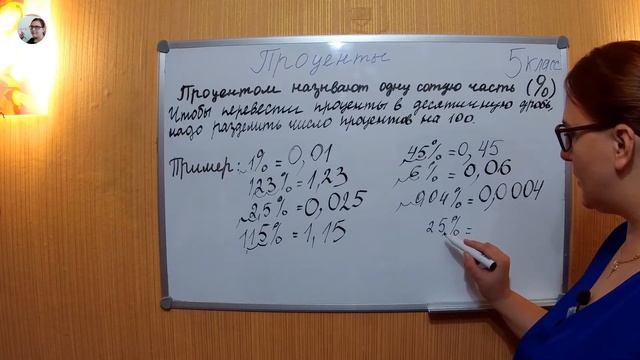 Проценты
5 класс
Процентом называют одну сотую часть (%)
Чтобы перевести проценты в десятичную дробь,
надо разделить число процентов на 100.
Пример: 1% = 0,01
123% = 1,23
2,5% = 0,025
115% = 1,15
45% = 0,45
6% = 0,06
0,04% = 0,0004
25% =